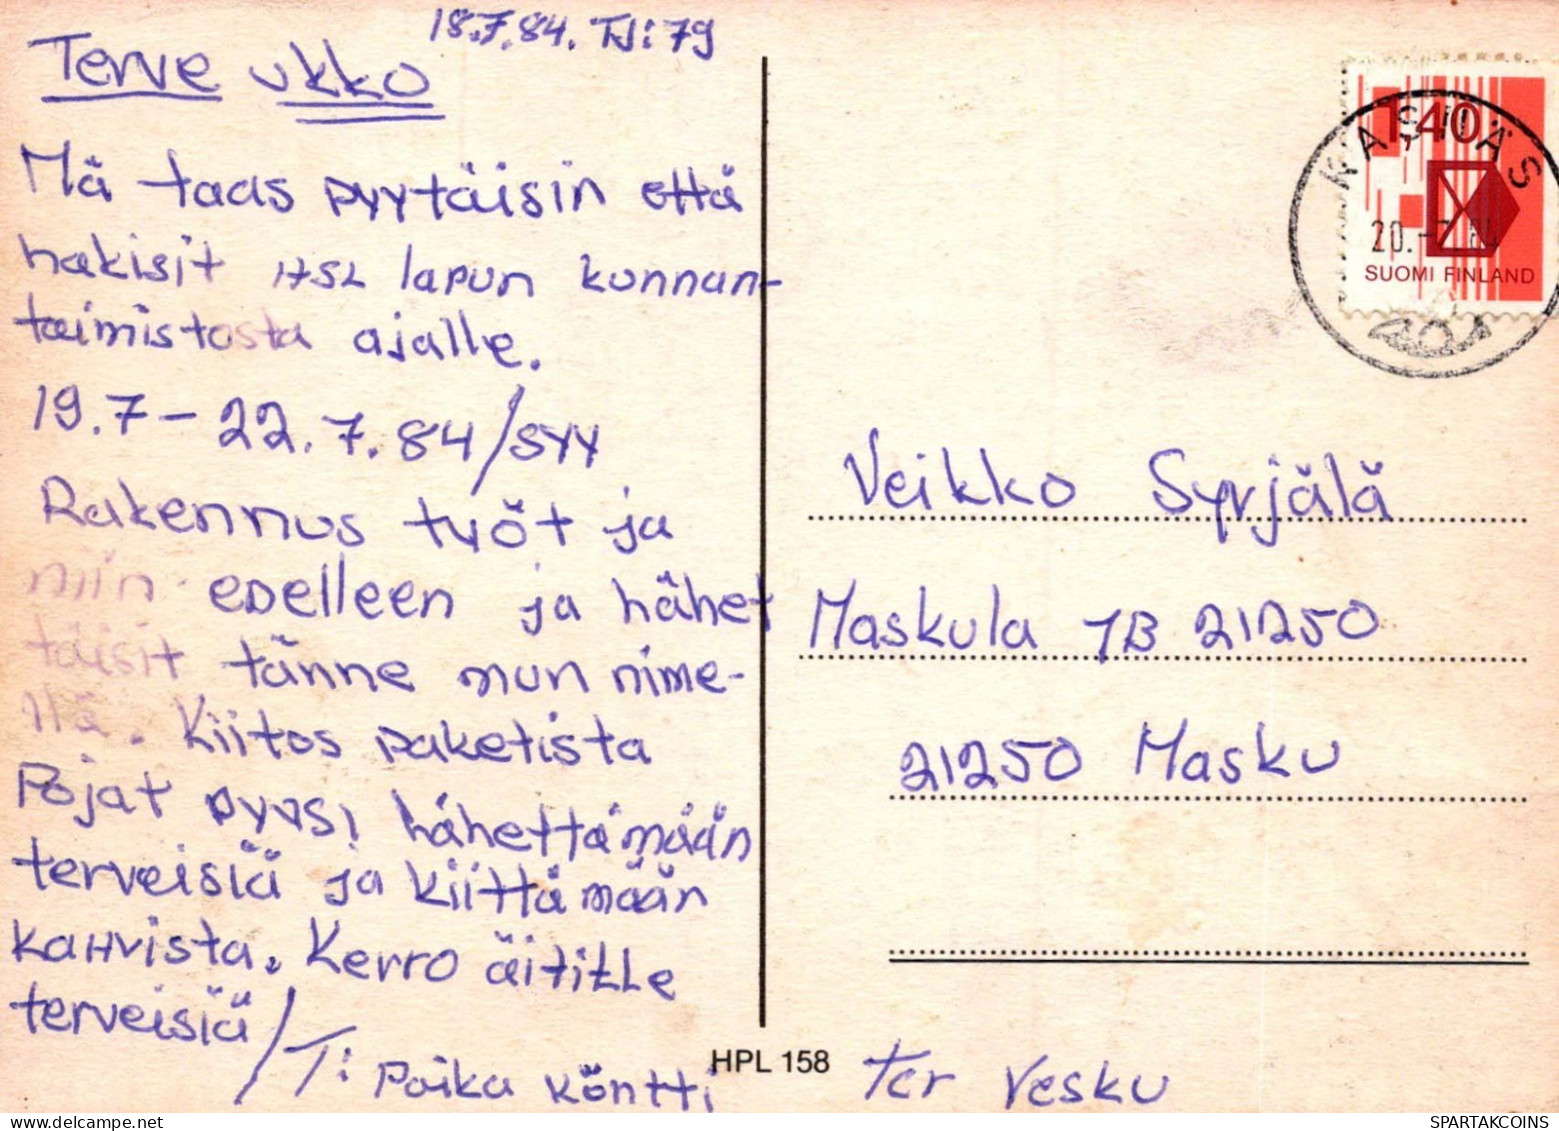 18.7.84. TJ: 79
Terve ukko
Mä taas pyytäisin että
hakisit HSL lapun kunnan-
toimistosta ajalle.
19.7 - 22.7.84/syy
Rakennus työt ja
niin edelleen ja hähet
täisit tänne mun nime-
llä. Kiitos paketista
Pojat pyysi hähettämään
terveisiä ja kiittämään
kahvista. Kerro äitille
terveisiä / T: Poika köntti
Ter Vesku
HPL 158
1,40
SUOMI FINLAND
20.-7.84
Veikko Syrjälä
Maskula 1B 21250
21250 Masku
SPARTAKCOINS